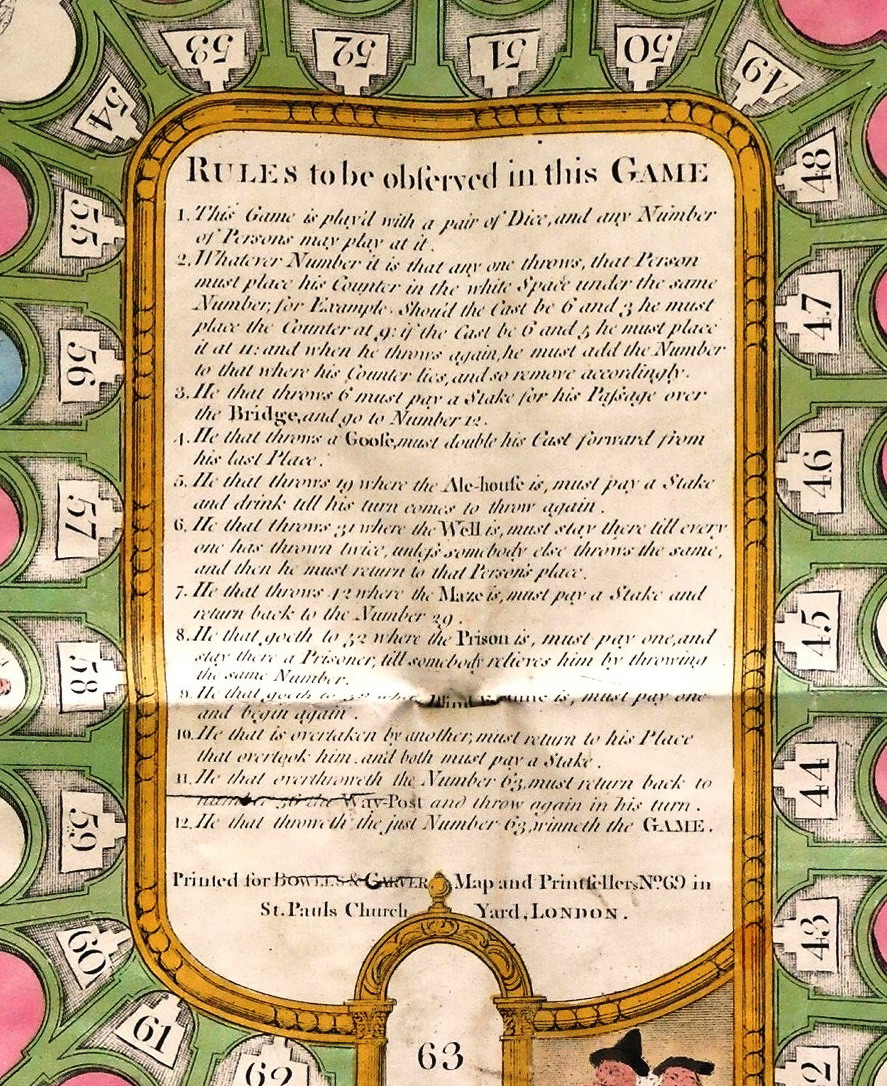 53
52
51
50
49
54
48
55
47
56
46
57
45
58
44
59
43
60
61
62
2
RULES to be obſerved in this GAME
1. This Game is play'd with a pair of Dice, and any Number
of Persons may play at it.
2. Whatever Number it is that any one throws, that Person
must place his Counter in the white Space under the same
Number; for Example. Shou'd the Cast be 6 and 3 he must
place the Counter at 9: if the Cast be 6 and 5 he must place
it at 11: and when he throws again, he must add the Number
to that where his Counter lies, and so remove accordingly.
3. He that throws 6 must pay a Stake for his Paſsage over
the Bridge, and go to Number 12.
4. He that throws a Gooſe, must double his Cast forward from
his last Place.
5. He that throws 19 where the Ale-houſe is, must pay a Stake
and drink till his turn comes to throw again.
6. He that throws 31 where the Well is, must stay there till every
one has thrown twice, unleſs somebody else throws the same,
and then he must return to that Person's place.
7. He that throws 42 where the Maze is, must pay a Stake and
return back to the Number 29.
8. He that goeth to 52 where the Prison is, must pay one, and
stay there a Prisoner, till somebody relieves him by throwing
the same Number.
9. He that goeth to is, must pay one
and begin again.
10. He that is overtaken by another, must return to his Place
that overtook him, and both must pay a Stake.
11. He that overthroweth the Number 63, must return back to
number the Way-Post and throw again in his turn.
12. He that throweth the just Number 63, winneth the GAME.
Printed for BOWLES & CARVER Map and Printſellers, No. 69 in
St. Pauls Church Yard, LONDON.
63